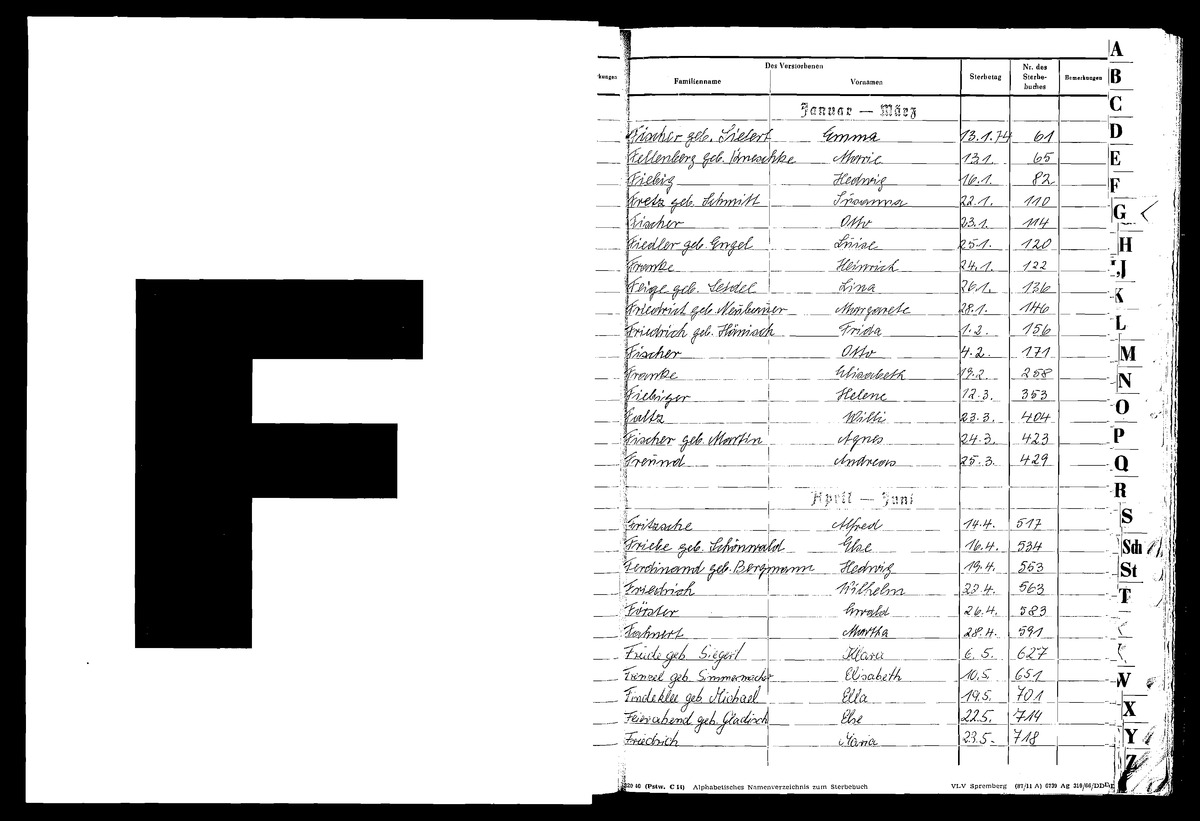 F
kungen
Des Verstorbenen
Familienname Vornamen Sterbetag Nr. des Sterbebuches Bemerkungen
Januar — März
Fischer geb. Siefert Emma 13.1.74 61
Fellenberg geb. Marie 13.1. 65
Fiebig Hedwig 16.1. 82
Fretz geb. Schmitt Susanna 22.1. 110
Fischer Otto 23.1. 114
Fiedler geb. Engel Luise 25.1. 120
Franke Heinrich 24.1. 122
Feige geb. Seidel Lina 26.1. 136
Friedrich geb. Neubauer Margarete 28.1. 146
Friedrich geb. Hänisch Frida 1.2. 156
Fischer Otto 4.2. 171
Franke Elisabeth 19.2. 258
Fiebiger Helene 12.3. 353
Faltz Willi 23.3. 404
Fischer geb. Martin Agnes 24.3. 423
Freund Andreas 25.3. 429
April — Juni
Fritzsche Alfred 14.4. 517
Friebe geb. Schönwald Else 16.4. 534
Ferdinand geb. Bergmann Hedwig 19.4. 553
Friedrich Wilhelm 22.4. 563
Förster Ewald 26.4. 583
Fochnert Martha 28.4. 591
geb Siegert Klara 6.5. 627
Frenzel geb. Simmermacher Elisabeth 10.5. 651
Findeklee geb Michael Ella 19.5. 701
Feierabend geb. Gladisch Else 22.5. 714
Friedrich Maria 23.5. 718
820 40 (Pstw. C 14) Alphabetisches Namenverzeichnis zum Sterbebuch VLV Spremberg (87/11 A) 6739 Ag 310/66/DDR
A
B
C
D
E
F
G
H
J
K
L
M
N
O
P
Q
R
S
Sch
St
T
W
X
Y
Z